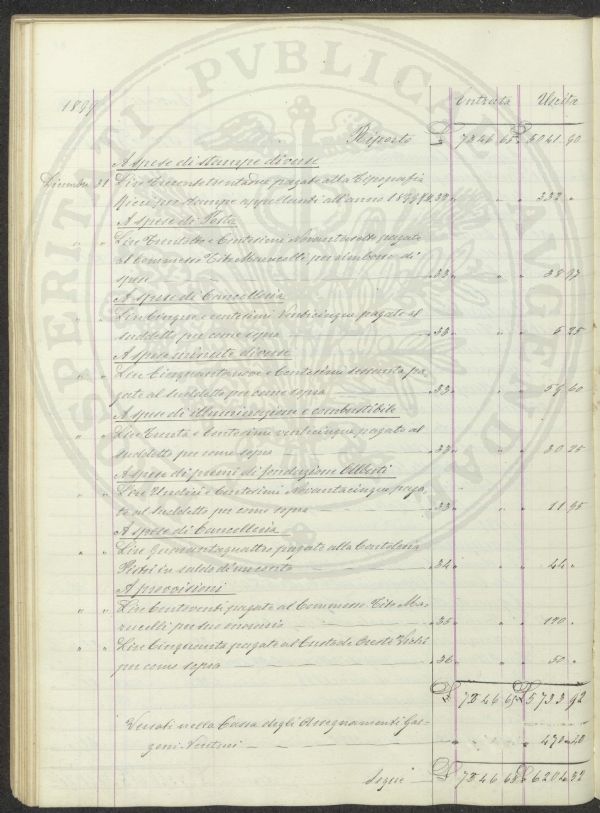 PROSPERITATI PVBLICAE AVGENDAE
1899
Entrata Uscita
Riporto £ 7346 65 £ 5041 90
A spese di stampe diverse
Dicembre 31 Lire Trecentotrentadue pagate alla Tipografia
Ricci per stampe appellanti all'anno 1899 332 "
A spese di Posta
" " Lire Trentotto e Centesimi Novantasette pagate
al Commesso Tito Marucelli per rimborso di
spese " 33 " " " 38 97
A spese di Cancelleria
" " Lire Cinque e centesimi Venticinque pagate al
suddetto per come sopra " 33 " " " 5 25
A spese minute diverse
" " Lire Cinquantanove e Centesimi sessanta pa-
gate al suddetto per come sopra " 33 " " " 59 60
A spese di illuminazione e combustibile
" " Lire Trenta e Centesimi venticinque pagate al
suddetto per come sopra " 33 " " " 30 25
A spese di premi di fondazione Alberti
" " Lire Undici e Centesimi Novantacinque paga-
te al suddetto per come sopra " 33 " " " 11 95
A spese di Cancelleria
" " Lire Quarantaquattro pagate alla Cartoleria
Pistoi in saldo di un conto " 34 " " " 44 "
A provvisioni
" " Lire Centoventi pagate al Commesso Tito Ma-
rucelli per suo onorario " 35 " " " 120 "
" " Lire Cinquanta pagate al Custode Oreste
per come sopra " 36 " " " 50 "
£ 7346 65 £ 5733 92
Versati nella Cassa degli Assegnamenti Gar-
geni Ventini " " " 470 40
Segue £ 7346 65 £ 6204 32